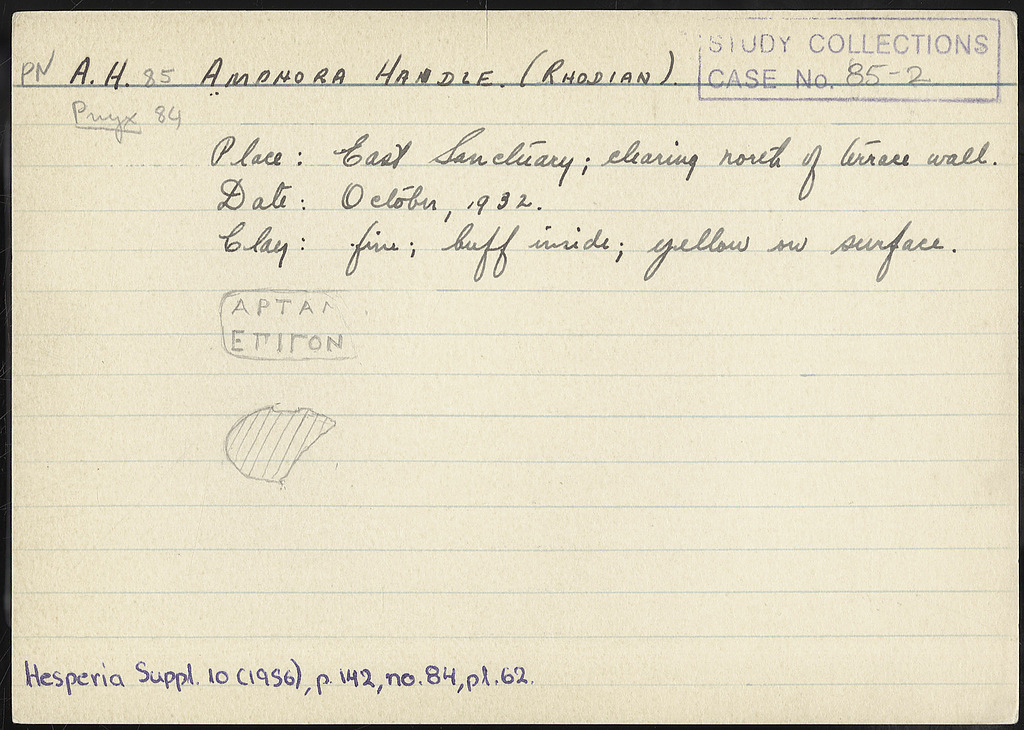 STUDY COLLECTIONS
CASE No. 85-2
PN A.H. 85 AMPHORA HANDLE. (RHODIAN).
Pnyx 84
Place: East Sanctuary; clearing north of terrace wall.
Date: October, 1932.
Clay: fine; buff inside; yellow on surface.
ΑΡΤΑΜ
ΕΠΙΓΟΝ
Hesperia Suppl. 10 (1956), p. 142, no. 84, pl. 62.